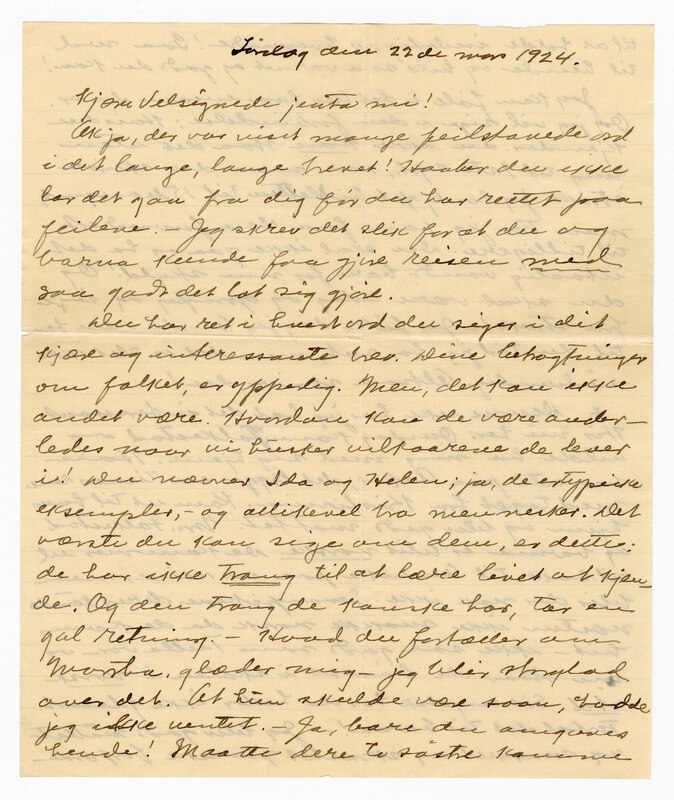 Lördag den 22de mars 1924.
Kjære Velsignede jenta mi!
Ak ja, der var visst mange feilstavede ord
i det lange, lange brevet! Haaber du ikke
lar det gaa fra dig før du har rettet paa
feilene. — Jeg skrev det slik for at du og
barna kunde faa gjøre reisen med
saa godt det lot sig gjøre.
Du har ret i hvert ord du siger i dit
kjære og interessante brev. Dine betragtninger
om folket, er ypperlig. Men, det kan ikke
andet være. Hvordan kan de være ander-
ledes naar vi husker vilkaarene de lever
i! Du nævner Ida og Helen; ja, de er typiske
eksempler, – og allikevel bra mennesker. Det
værste du kan sige om dem, er dette:
de har ikke trang til at lære livet at kjen-
de. Og den trang de kanske har, tar en
gal retning. – Hvad du fortæller om
glæder mig – jeg blir storglad
over det. At hun skulde være saan, trodde
jeg ikke ventet. – Ja, bare du omgaaes
hende! Maatte dere to søstre komme